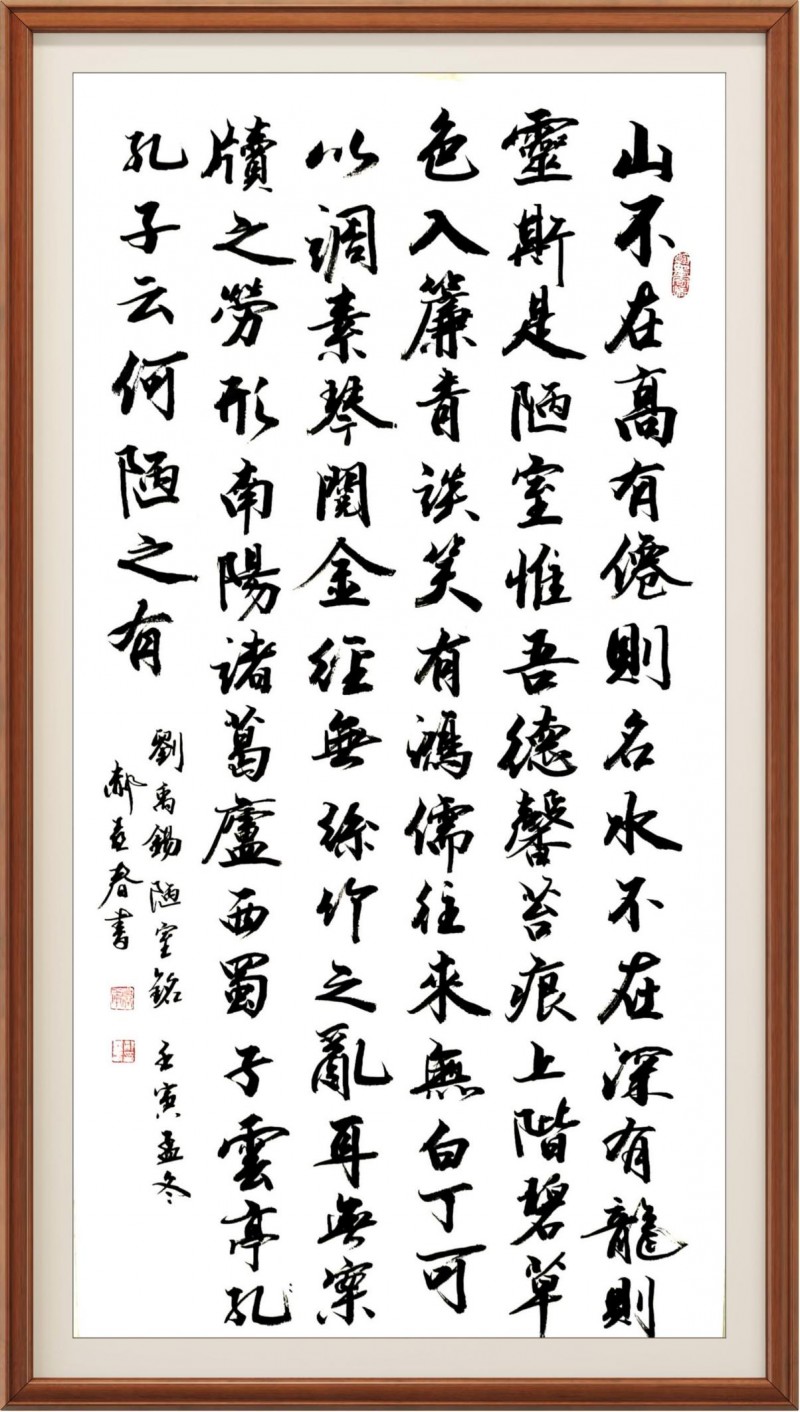 山不在髙有僊則名水不在深有龍則
靈斯是陋室惟吾德馨苔痕上階碧草
色入簾青談笑有鴻儒往來無白丁可
以調素琴閱金經無絲竹之亂耳無案
牘之勞形南陽諸葛廬西蜀子雲亭孔
孔子云何陋之有
劉禹錫陋室銘 壬寅孟冬
郝春書